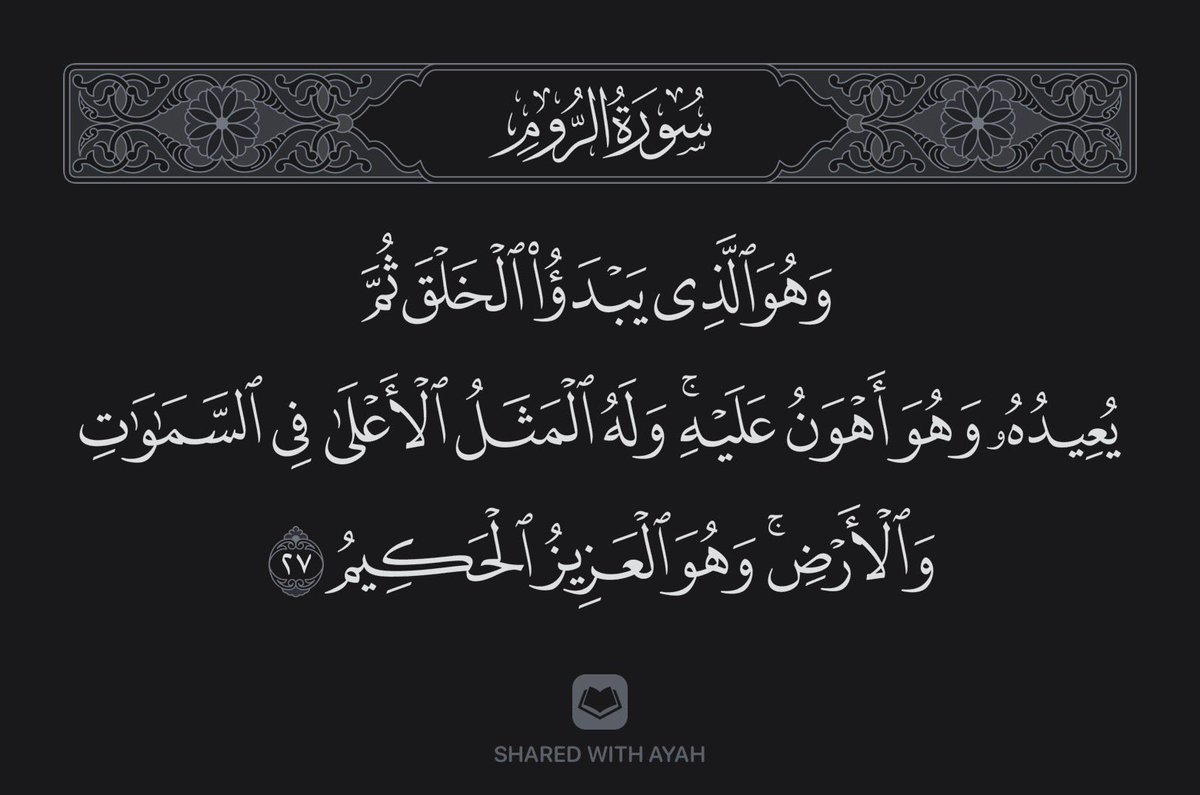 سُورَةُ الرُّومِ
وَهُوَ ٱلَّذِى يَبْدَؤُا۟ ٱلْخَلْقَ ثُمَّ
يُعِيدُهُۥ وَهُوَ أَهْوَنُ عَلَيْهِ ۚ وَلَهُ ٱلْمَثَلُ ٱلْأَعْلَىٰ فِى ٱلسَّمَـٰوَٰتِ
وَٱلْأَرْضِ ۚ وَهُوَ ٱلْعَزِيزُ ٱلْحَكِيمُ ٢٧
SHARED WITH AYAH